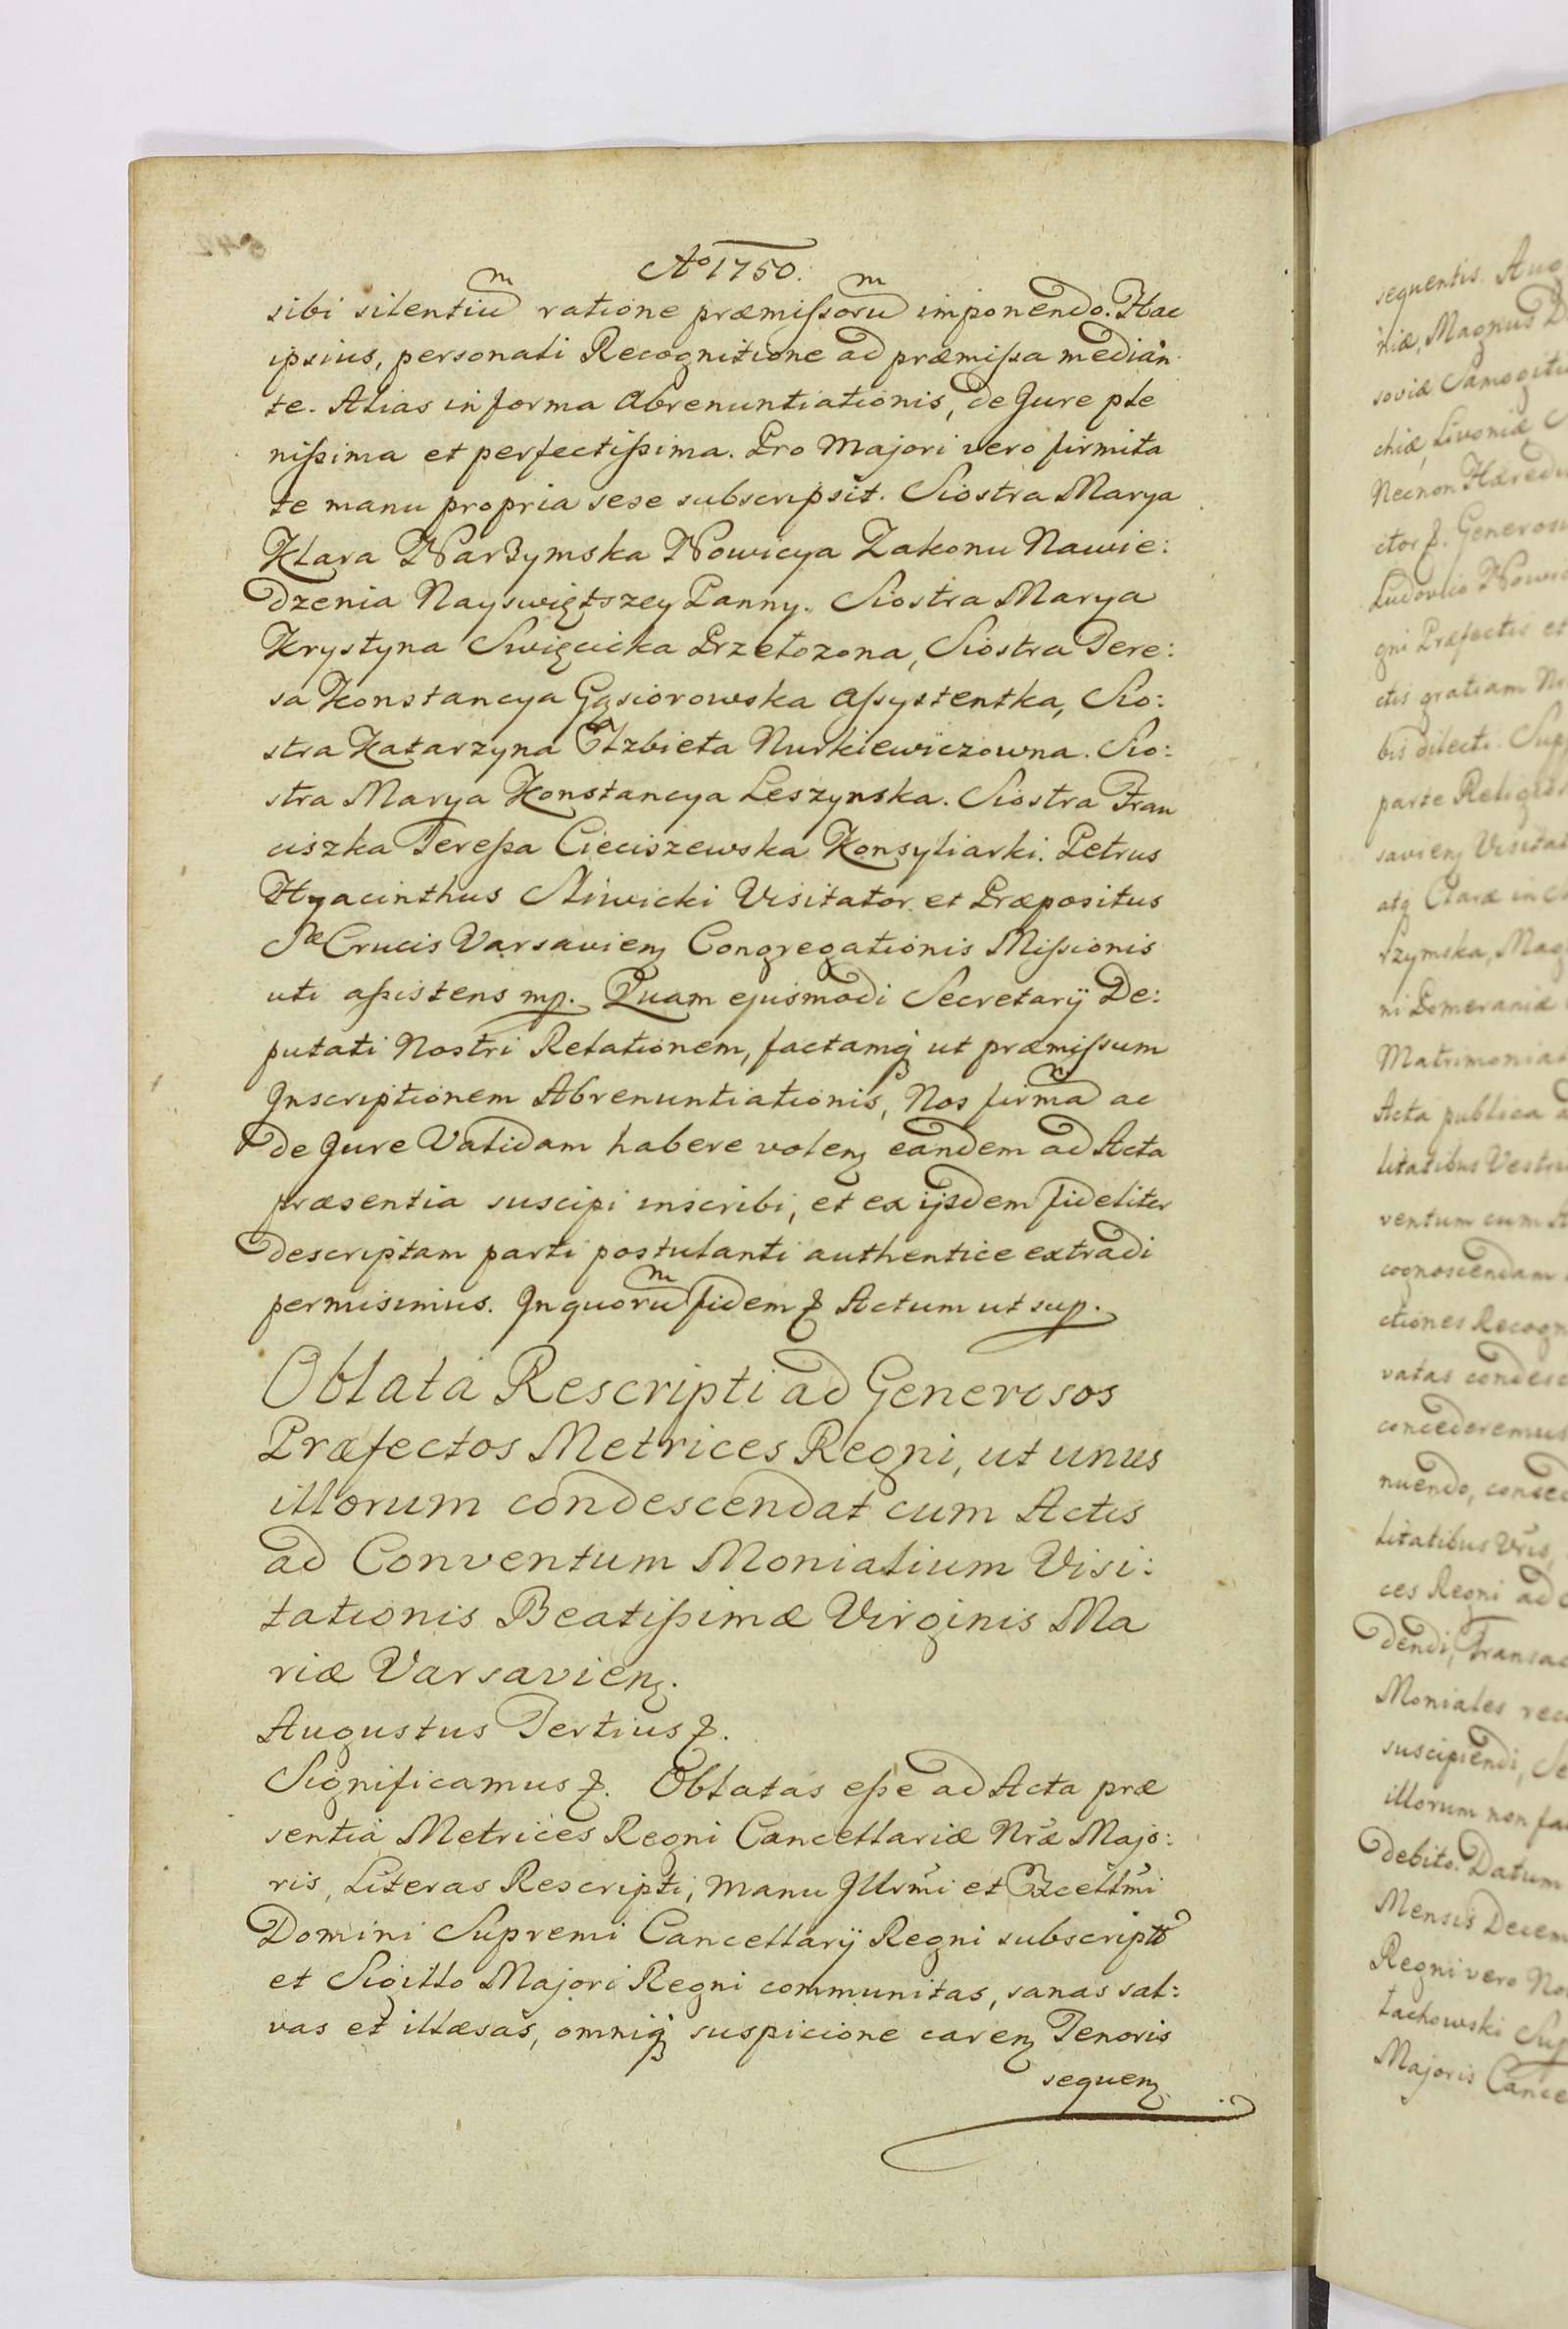 Aᵒ 1750.
sibi silentiuᵐ ratione præmiſsoruᵐ imponendo. Hac
ipsius, personali Recognitione ad præmiſsa median
te. Alias in forma Abrenuntiationis, de Jure ple
niſsima et perfectiſsima. Pro Majori vero firmita
te manu propria sese subscripsit. Siostra Marya
Klara Narzymska Nowicya Zakonu Nawie:
dzenia Nayswiętszey Panny. Siostra Marya
Krystyna Swięcicka Przełozona, Siostra Tere:
sa Konstancya Gąsiorowska Aſsystentka, Sio:
stra Katarzyna Elzbieta Nurkiewiczowna. Sio:
stra Marya Konstancya Leszynska. Siostra Fran
ciszka Tereſsa Cieciszewska Konsyliarki. Petrus
Hyacinthus Sliwicki Visitator et Præpositus
Sæ Crucis Varsavien Congregationis Miſsionis
uti aſsistens mp. Quam ejusmodi Secretarij De:
putati Nostri Relationem, factamq ut præmiſsum
Inscriptionem Abrenuntiationis, Nos firmaᵐ ac
de Jure Validam habere volen eandem ad Acta
præsentia suscipi inscribi, et ex ijsdem fideliter
descriptam parti postulanti authentice extradi
permisimus. In quoruᵐ fidem ⁊ Actum ut sup.
Oblata Rescripti ad Generosos
Præfectos Metrices Regni, ut unus
illorum condescendat cum Actis
ad Conventum Monialium Visi:
tationis Beatiſsimæ Virginis Ma
riæ Varsavien.
Augustus Tertius ⁊.
Significamus ⁊. Oblatas eſse ad Acta præ
sentia Metrices Regni Cancellariæ Nræ Majo:
ris, Literas Rescripti, manu Illrmi et Excellmi
Domini Supremi Cancellarij Regni subscriptas
et Sigillo Majori Regni communitas, sanas sal:
vas et illæsas, omniq suspicione caren Tenoris
sequen
sequentis. Aug
niæ, Magnus D
soviæ Samogitiæ
chiæ, Livoniæ
Necnon Hæredi
ctor ⁊. Generosi
Ludovico Nowic
gni Præfectis et
ctis gratiam Nr
bis dilecti. Sup
parte Religios
savien Visitat
atq Claræ in
rzymska, Mag
ni Pomeraniæ
Matrimonial
Acta publica
litatibus Vestris
ventum cum A
cognoscendam
ctiones Recogn
vatas condesc
concederemus
nuendo, conced
litatibus Vris
ces Regni ad
dendi, Transac
Moniales rec
suscipiendi, Se
illorum non fac
debito. Datum
Mensis Decem
Regni vero No
tachowski Sup
Majoris Cance